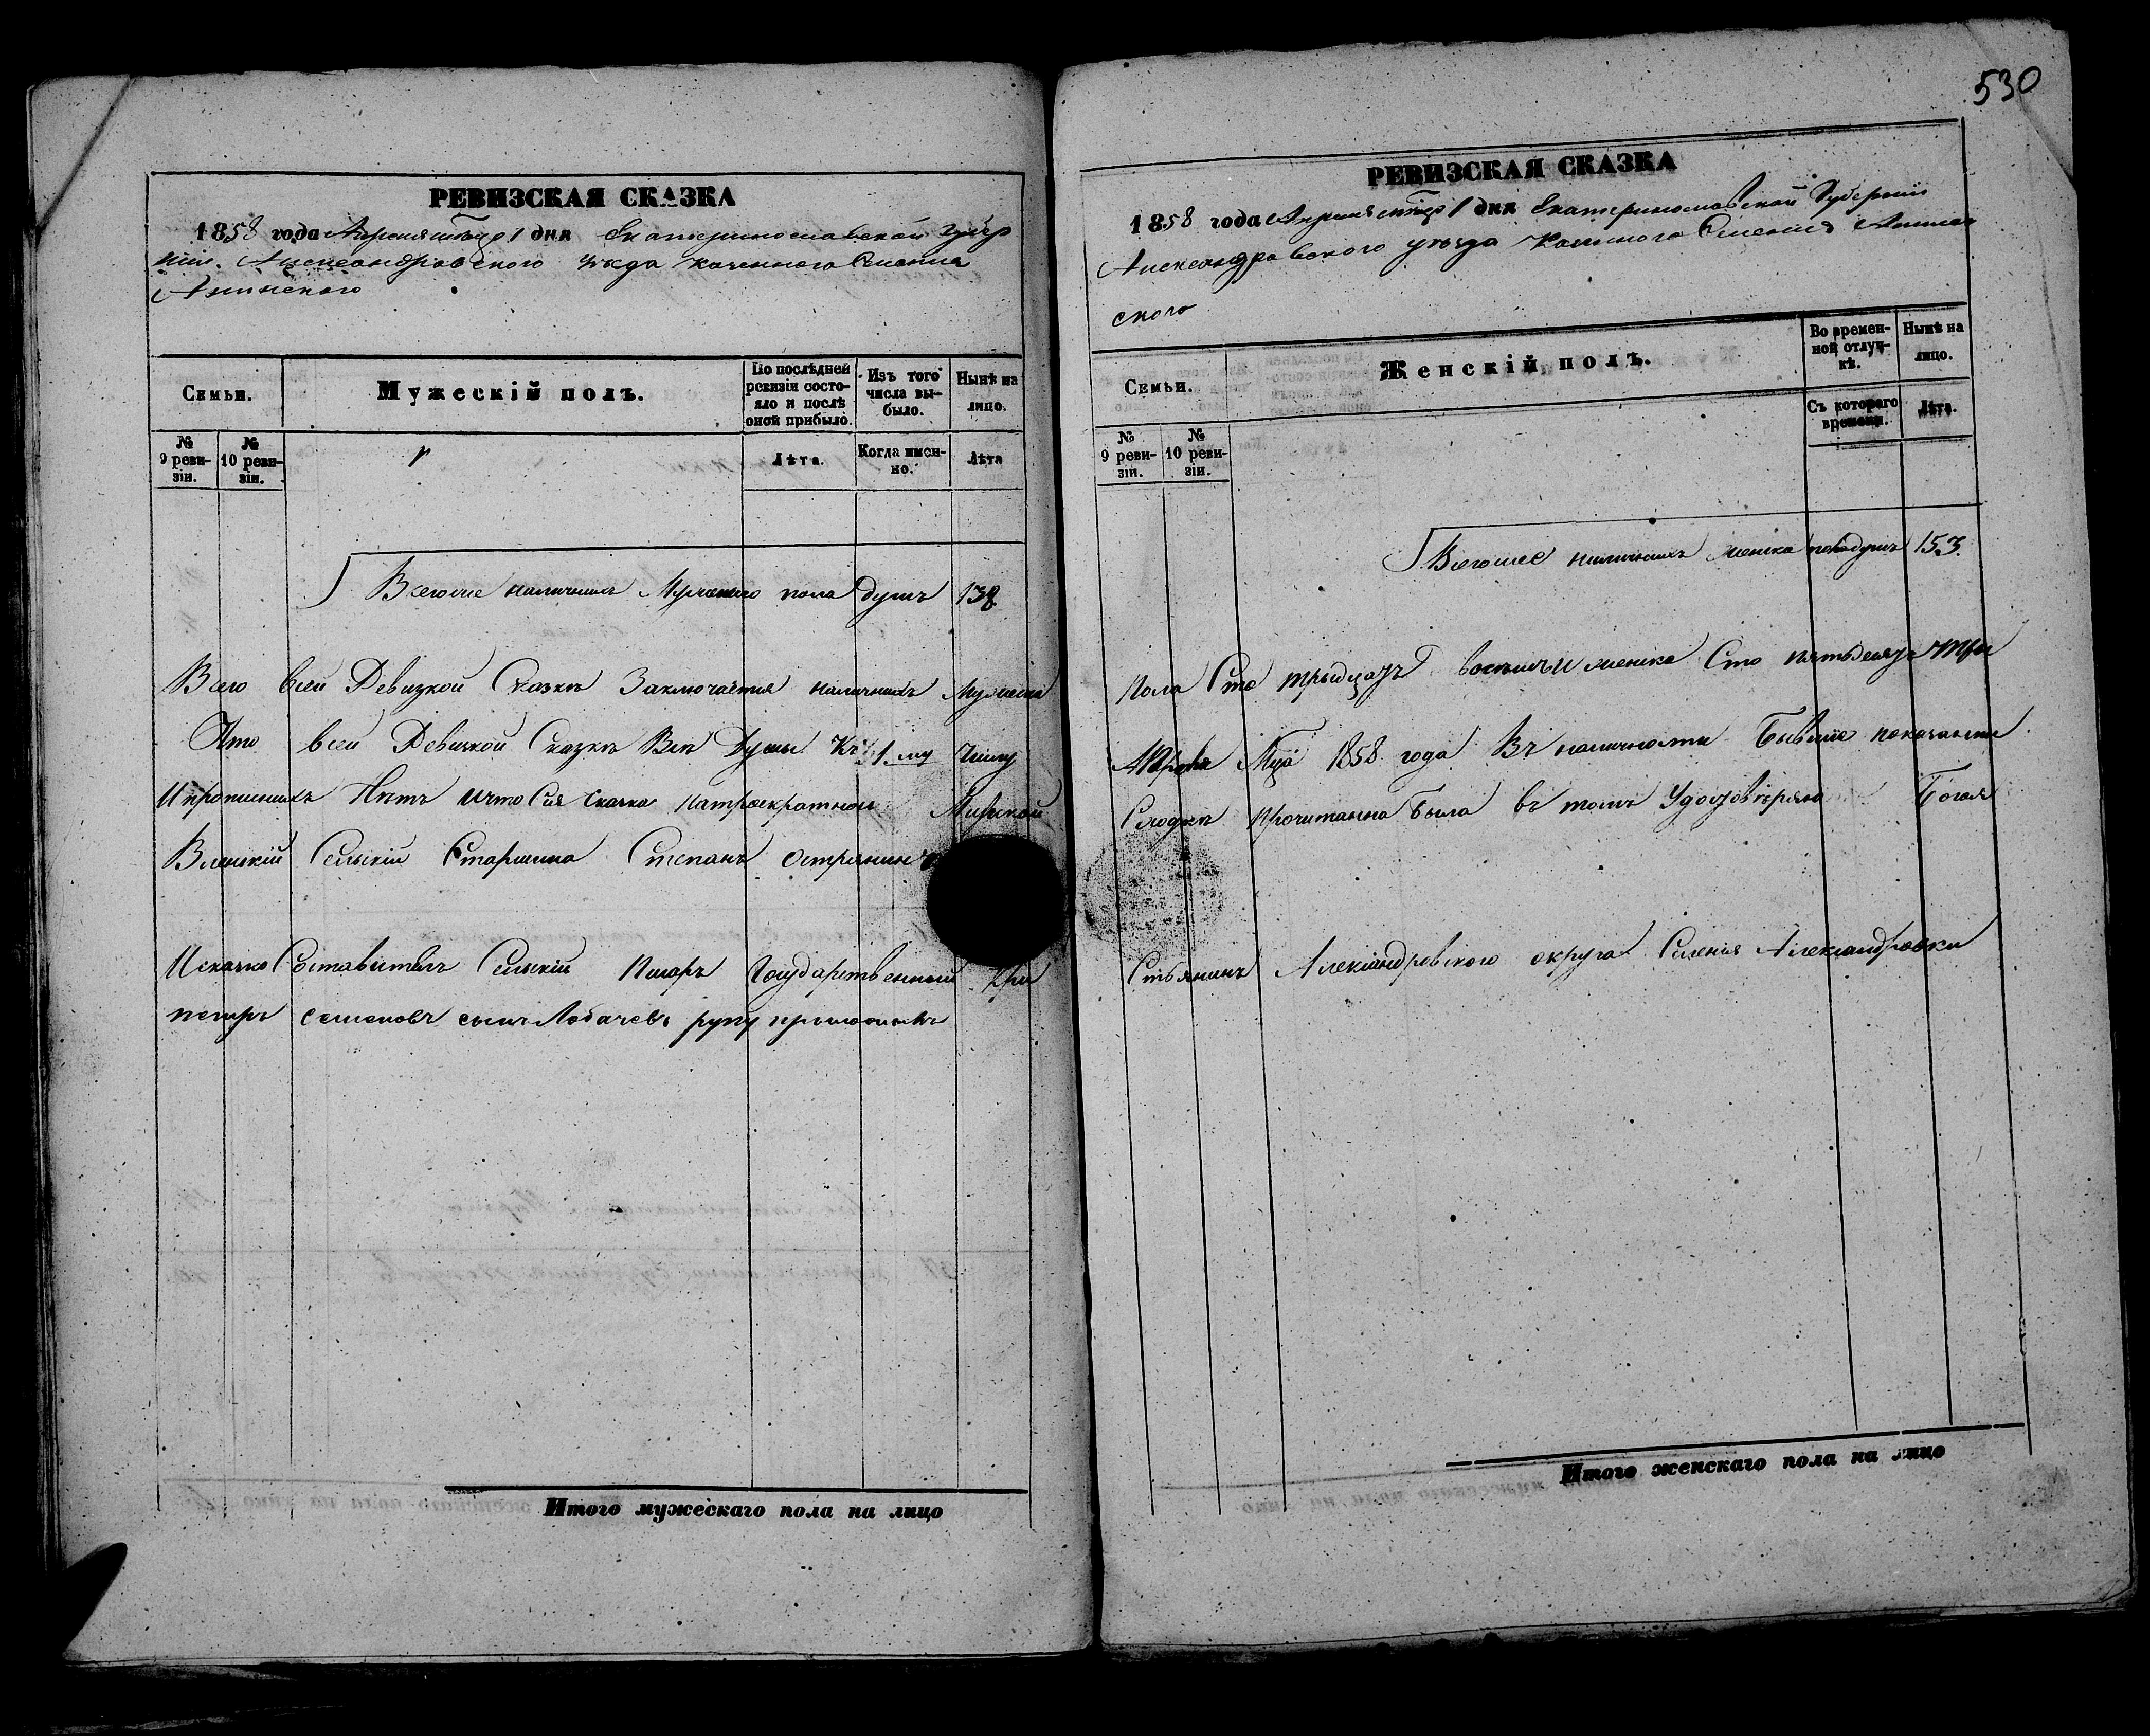 530
РЕВИЗСКАЯ СКАЗКА
1858 года Апреля 1 дня Екатеринославской Губер
нии Александровского уезда казенного Селения
Анинского
Семьи.
Мужескій полъ.
По послѣдней ревизіи состо-
яло и послѣ оной прибыло.
Изъ того числа вы-
было.
Нынѣ на лицо.
№ 9 реви-
зіи.
№ 10 реви-
зіи.
Лѣта.
Когда имен-
но.
Лѣта
Всего наличныхъ Мужеского пола душъ 138
Всего всей Ревизкой Сказкѣ Заключается наличныхъ Мужеска
Что всей Ревизкой Сказкѣ Всѣ Души Къ 1му Числу
Ипрописныхъ Нѣтъ ичто Сия Сказка натроекратном Мирской
Вленский Селский Старшина Степанъ Острянинъ
Исказко Составитель Селский Писарь Государственный Кре
петръ семеновъ сынъ Лобачевъ руку приложилъ
РЕВИЗСКАЯ СКАЗКА
1858 года Апреля 1 дня Екатеринославской Губернии
Александровского уезда Казенного Селения Аннин
ского
Семьи.
Женскій полъ.
Во времен-
ной отлуч-
кѣ.
Нынѣ на лицо.
№ 9 реви-
зіи.
№ 10 реви-
зіи.
Съ котораго времени.
Лѣта.
наличныхъ женска пола душъ 153
Пола Сто трыдцать восемъ И женска Сто пятьдесятъ три
Апреля 1858 года Въ наличности Бывшие показанны
Сходкѣ прочитанна Была въ томъ Удостовѣряю Богоя
Стьянинъ Александровского округа Селения Александровки
Итого мужескаго пола на лицо
Итого женскаго пола на лицо